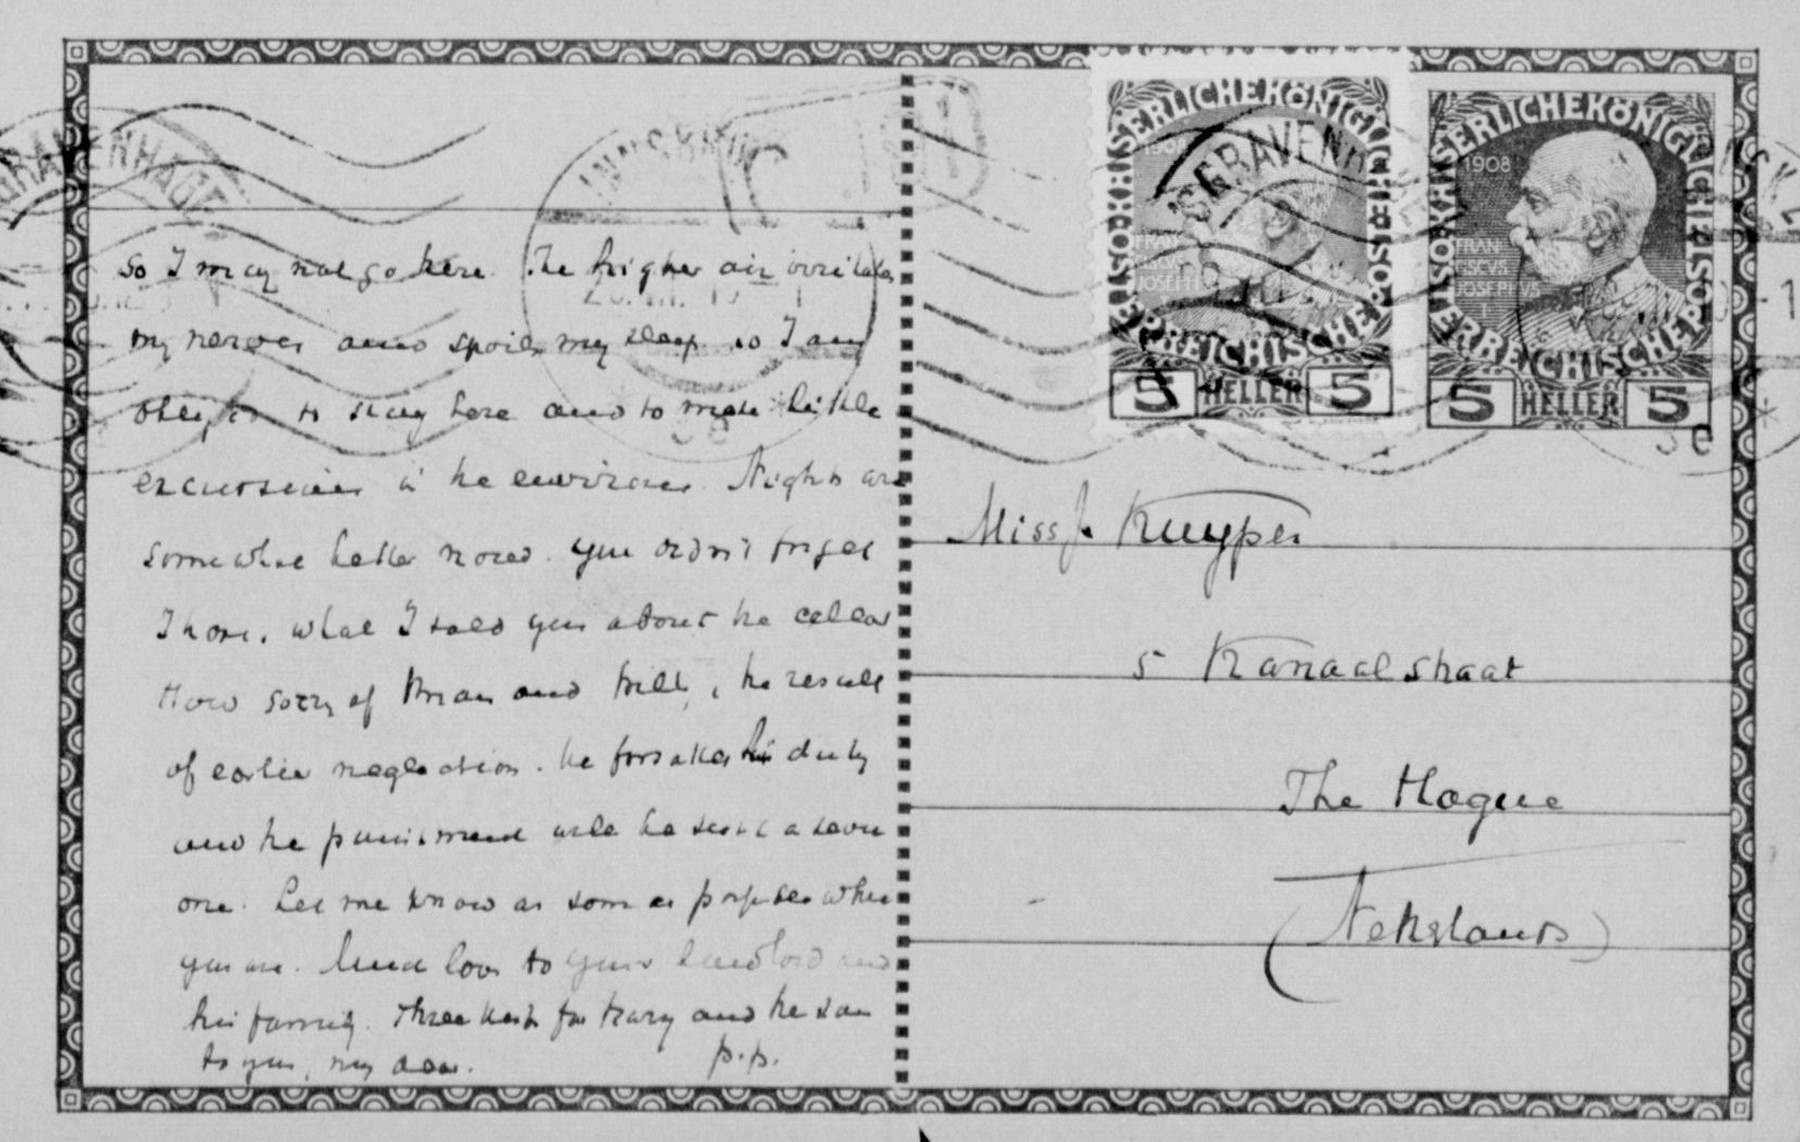 so I may not go here. The higher air irritates
my nerves and spoils my sleep so I am
obliged to stay here and to make little
excursions in the environs. Nights are
somewhat better now. You didn't forget
I hope, what I told you about the cellar
How sorry of Brian and Billy, the result
of earlier neglection. he forsakes his duty
and the punishment will be such a severe
one. Let me know as soon as possible when
you are. Much love to your landlord and
his family. Three kisses for Harry and the same
to you, my dear. p.p.
Miss J. Kuyper
5 Kanaalstraat
The Hague
(Netherlands)
SERLICHEKÖNIGLICHE
1908
FRAN
CISCVS
JOSEPHVS
I
ÖSTERREICHISCHE POST
5 HELLER 5
SERLICHEKÖNIGLICHE
1908
FRAN
CISCVS
JOSEPHVS
I
ÖSTERREICHISCHE POST
5 HELLER 5
GRAVENHAGE
INNSBRUCK
'SGRAVENH